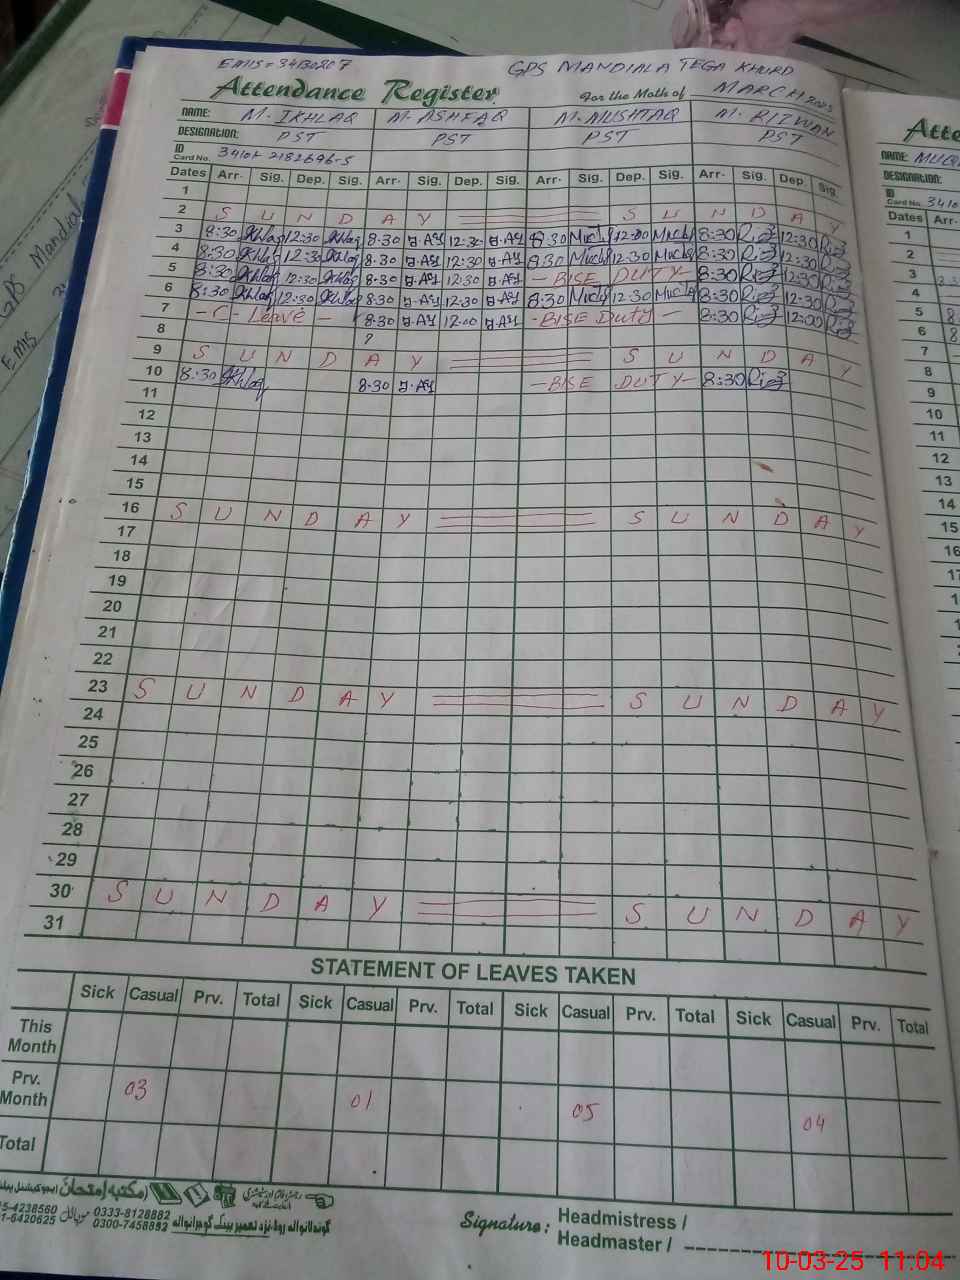 EMIS = 34130207 GPS MANDIALA TEGA KHURD
Attendance Register For the Moth of MARCH 2025
NAME: M. IKHLAQ M. ASHFAQ M. MUSHTAQ M. RIZWAN
DESIGNATION: PST PST PST PST
ID Card No. 34101 2182696-5
Dates Arr. Sig. Dep. Sig. Arr. Sig. Dep. Sig. Arr. Sig. Dep. Sig. Arr. Sig. Dep. Sig.
1
2 S U N D A Y S U N D A Y
3 8:30 Ikhlaq 12:30 Ikhlaq 8.30 12.30 8:30 12:00 8:30 12:30
4 8:30 Ikhlaq 12:30 Ikhlaq 8.30 12.30 8:30 12:30 8:30 12:30
5 8:30 Ikhlaq 12:30 Ikhlaq 8.30 12.30 - BISE DUTY - 8:30 12:30
6 8:30 Ikhlaq 12:30 Ikhlaq 8.30 12.30 8:30 12:30 8:30 12:30
7 - C - Leave - 8.30 12.00 - BISE Duty - 8:30 12:00
8
9 S U N D A Y S U N D A Y
10 8:30 Ikhlaq 8.30 - BISE DUTY - 8:30
11
12
13
14
15
16 S U N D A Y S U N D A Y
17
18
19
20
21
22
23 S U N D A Y S U N D A Y
24
25
26
27
28
29
30 S U N D A Y S U N D A Y
31
STATEMENT OF LEAVES TAKEN
Sick Casual Prv. Total Sick Casual Prv. Total Sick Casual Prv. Total Sick Casual Prv. Total
This Month
Prv. Month 03 01 05 04
Total
مکتبہ امتحان
5-4238560 0333-8128882
1-6420625 موبائل 0300-7458892
گوندلانوالہ روڈ نزد تعمیر بینک گوجرانوالہ
Signature: Headmistress /
Headmaster /
10-03-25 11.04
Atte
NAME: MUQ
DESIGNATION:
ID Card No. 3410
Dates Arr.
1
2
3
4
5 8
6 8
7
8
9
10
11
12
13
14
15
16
GPS Mandial
EMIS